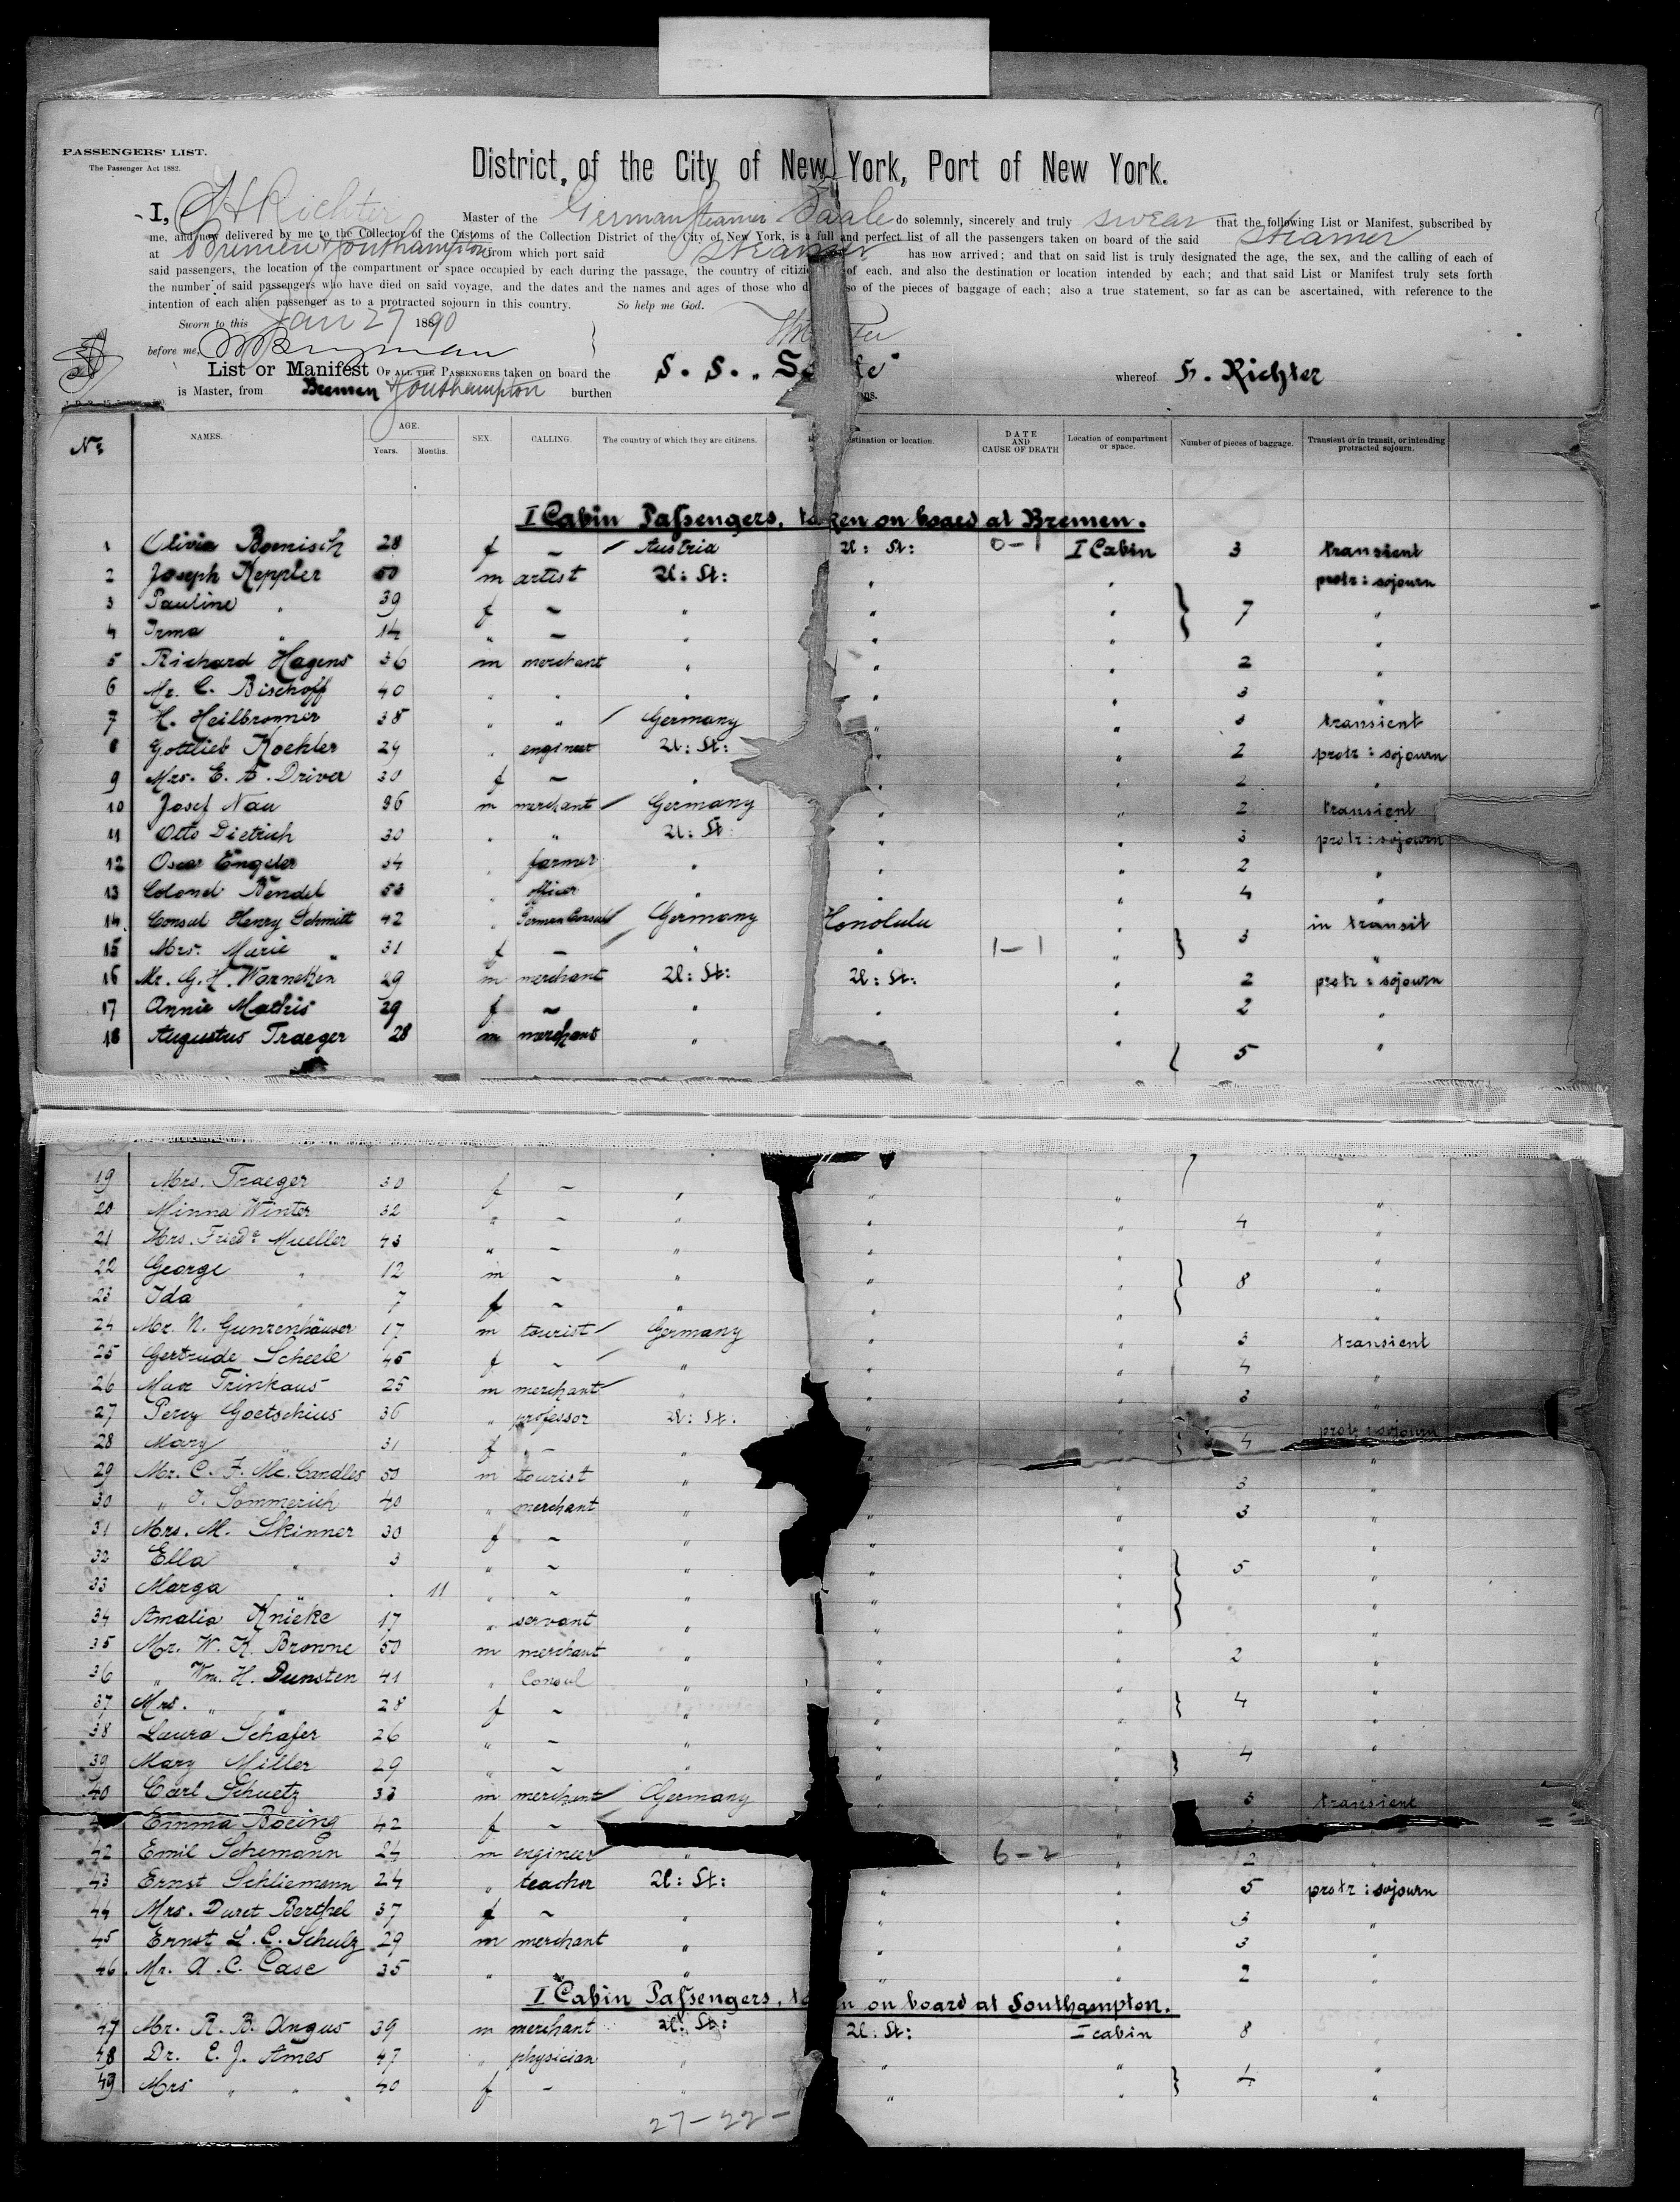 PASSENGERS' LIST.
The Passenger Act 1882.
District, of the City of New York, Port of New York.
I, H Richter Master of the German Steamer Saale do solemnly, sincerely and truly swear that the following List or Manifest, subscribed by
me, and now delivered by me to the Collector of the Customs of the Collection District of the City of New York, is a full and perfect list of all the passengers taken on board of the said Steamer
at Bremen & Southampton from which port said Steamer has now arrived; and that on said list is truly designated the age, the sex, and the calling of each of
said passengers, the location of the compartment or space occupied by each during the passage, the country of citize of each, and also the destination or location intended by each; and that said List or Manifest truly sets forth
the number of said passengers who have died on said voyage, and the dates and the names and ages of those who d so of the pieces of baggage of each; also a true statement, so far as can be ascertained, with reference to the
intention of each alien passenger as to a protracted sojourn in this country. So help me God.
Sworn to this Jan 27 1890
before me,
List or Manifest OF ALL THE PASSENGERS taken on board the S. S. "Saale" whereof H. Richter
is Master, from Bremen & Southampton burthen ns.
No. NAMES. AGE. Years. Months. SEX. CALLING. The country of which they are citizens. stination or location. DATE AND CAUSE OF DEATH Location of compartment or space. Number of pieces of baggage. Transient or in transit, or intending protracted sojourn.
I Cabin Passengers, taken on board at Bremen.
1 Olivia Boenisch 28 f ~ / Austria U: St: 0-1 I Cabin 3 transient
2 Joseph Keppler 50 m artist U: St: " " protr: sojourn
3 Pauline " 39 f ~ " " " 7 "
4 Irma " 14 " ~ " " " "
5 Richard Hagens 36 m merchant " " " 2 "
6 Mr. C. Bischoff 40 " " " " " 3 "
7 H. Heilbronner 38 " " / Germany " " 3 transient
8 Gottlieb Koehler 29 " engineer U: St: " " 2 protr: sojourn
9 Mrs. E. A. Driver 30 f ~ " " " 2 "
10 Josef Nau 36 m merchant / Germany " 2 transient
11 Otto Dietrich 30 " " U: St " " 3 protr: sojourn
12 Oscar Engeler 34 " farmer " " " 2 "
13 Colonel Bendel 53 " officer " " " 4 "
14 Consul Henry Schmitt 42 " German Consul / Germany Honolulu " in transit
15 Mrs. Marie " 31 f ~ / " " 1-1 " 3 "
16 Mr. G. H. Warneken 29 m merchant U: St: U: St: " 2 protr: sojourn
17 Annie Mathis 29 f ~ " " " 2 "
18 Augustus Traeger 28 m merchant " " " 5 "
19 Mrs. Traeger 30 f ~ " " " "
20 Minna Winter 32 " ~ " " " 4 "
21 Mrs. Friedr. Mueller 43 " ~ " " " "
22 George " 12 m ~ " " " 8 "
23 Ida " 7 f ~ " " " "
24 Mr. N. Gunzenhäuser 17 m tourist / Germany " " 3 transient
25 Gertrude Scheele 45 f ~ / " " " 4 "
26 Max Trinkaus 25 m merchant / " " " 3 "
27 Percy Goetschius 36 " professor U: St. " " protr: sojourn
28 Mary " 31 f ~ " " 4 "
29 Mr. C. F. Mc. Candles 50 m tourist " " " 3 "
30 " J. Sommerich 40 " merchant " " " 3 "
31 Mrs. M. Skinner 30 f ~ " " " "
32 Ella " 3 " ~ " " " 5 "
33 Marga " . 11 " ~ " " " "
34 Amalia Knieke 17 " servant " " " "
35 Mr. W. K. Browne 50 m merchant " " " 2 "
36 " Wm. H. Dunsten 41 " Consul " " " "
37 Mrs. " " 28 f ~ " " " 4 "
38 Laura Schafer 26 " ~ " " " "
39 Mary Miller 29 " ~ " " " 4 "
40 Carl Schuetz 33 m merchant / Germany " " 3 transient
Emma Boeing 42 f ~ "
42 Emil Schemann 24 m engineer / " 6-2 " 2 "
43 Ernst Schliemann 24 " teacher U: St: " " 5 protr: sojourn
44 Mrs. Duret Berthel 37 f ~ " " " 3 "
45 Ernst L. C. Schulz 29 m merchant " " " 3 "
46 Mr. A. C. Case 35 " " " " " 2 "
I Cabin Passengers, taken on board at Southampton.
47 Mr. R. B. Angus 39 m merchant U: St: U: St: I cabin 8 "
48 Dr. E. J. Ames 47 " physician " " " "
49 Mrs " " 40 f ~ " " " 4 "
27-22-